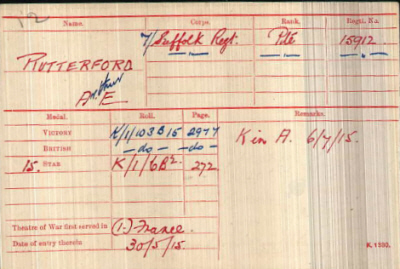 12
Name. Corps. Rank. Regtl. No.
7/Suffolk Regt. Pte 15912.
RUTTERFORD
A E
Medal. Roll. Page. Remarks.
VICTORY K/1/103B15 2977
BRITISH -do- -do- K in A. 6/7/15.
15. STAR K/1/6B2. 272
Theatre of War first served in (1) France.
Date of entry therein 30/5/15.
K. 1380.